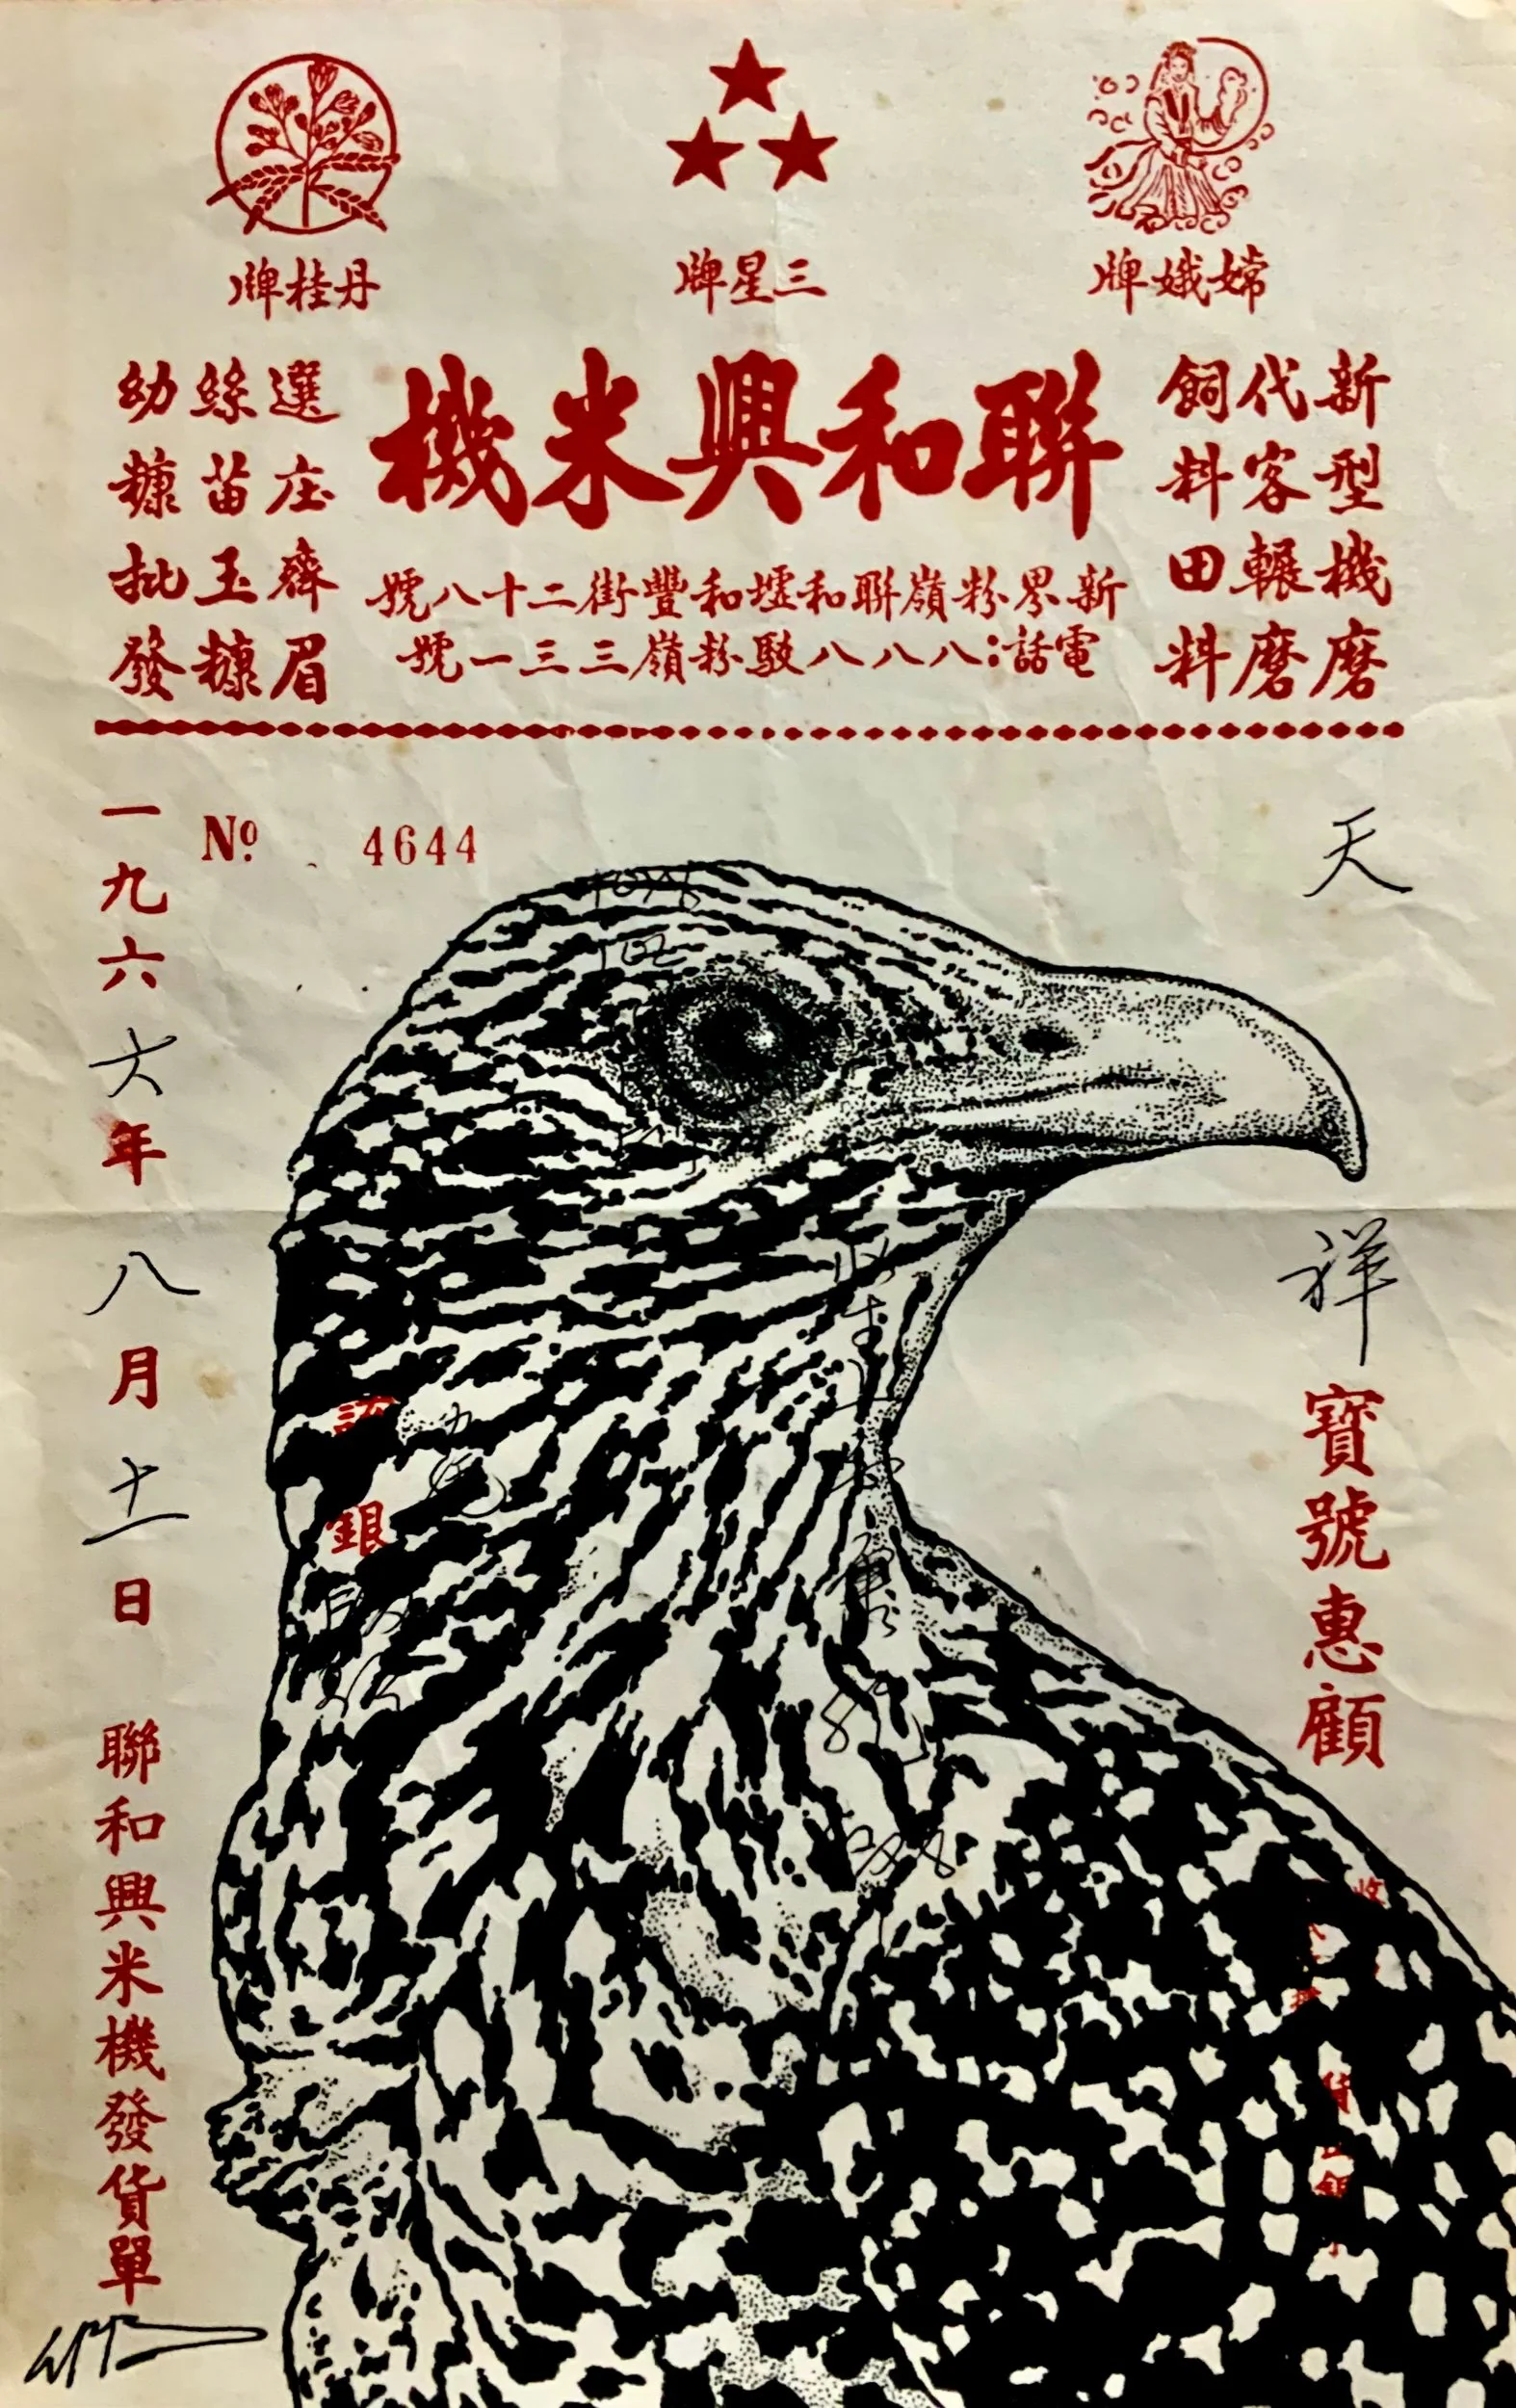 嫦娥牌
三星牌
丹桂牌
新型機磨
代客輾磨
飼料田料
聯和興米機
新界粉嶺聯和墟和豐街二十八號
電話:八八八駁粉嶺三三一號
選庄齊眉
絲苗玉糠
幼糠批發
No 4644
天祥寶號惠顧
銀
一九六六年八月十一日
聯和興米機發貨單